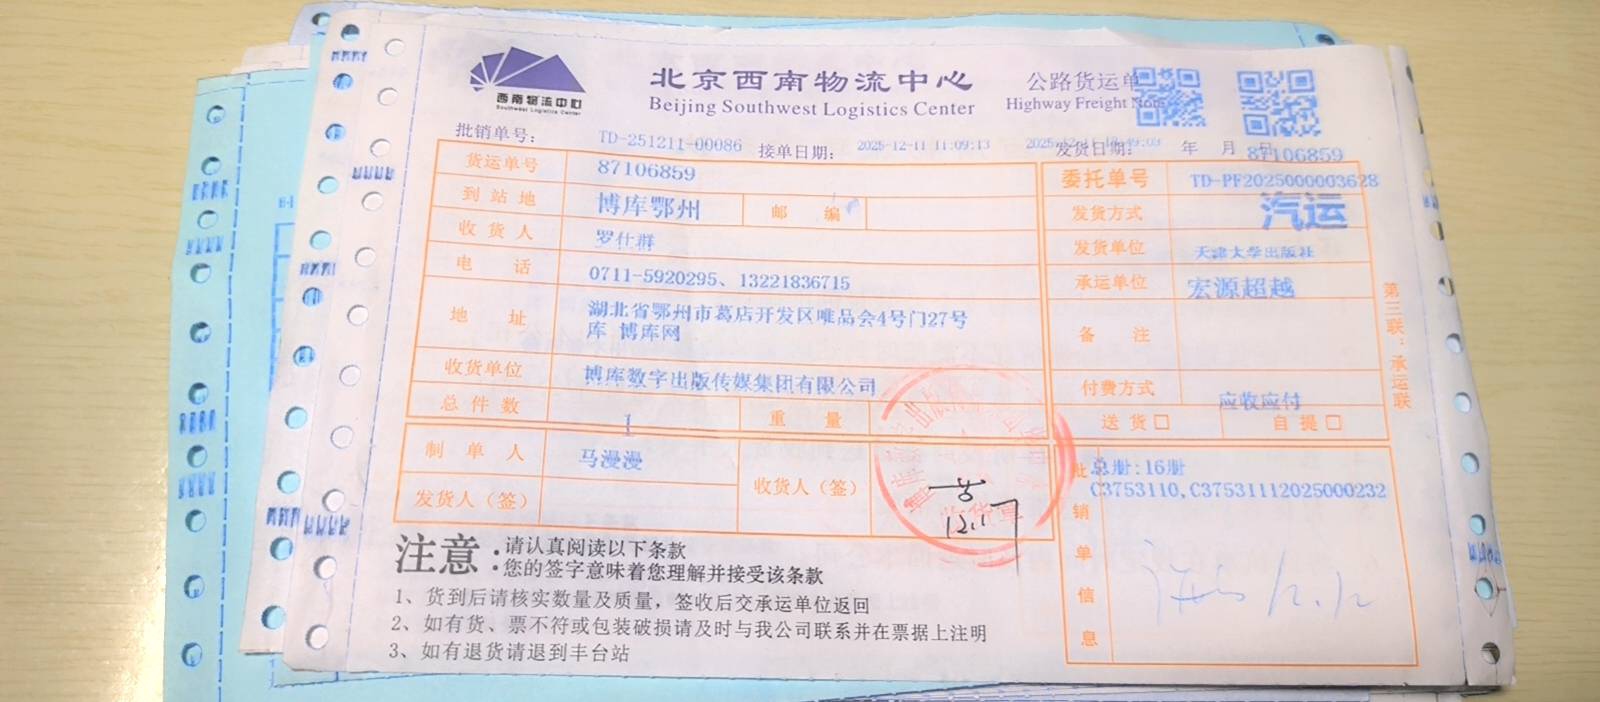 西南物流中心
Southwest Logistics Center
北京西南物流中心
Beijing Southwest Logistics Center
公路货运单
Highway Freight Note
批销单号: TD-251211-00086 接单日期: 2025-12-11 11:09:13 发货日期: 年 月 日
87106859
货运单号 87106859
委托单号 TD-PF2025000003628
到站地 博库鄂州 邮编
发货方式 汽运
收货人 罗仕群
发货单位 天津大学出版社
电话 0711-5920295、13221836715
承运单位 宏源超越
地址 湖北省鄂州市葛店开发区唯品会4号门27号
库 博库网
备注
收货单位 博库数字出版传媒集团有限公司
付费方式 应收应付
总件数 1 重量
送货□ 自提□
制单人 马漫漫
发货人（签） 收货人（签）
收货章
12.17
批销单信息
总册:16册
C3753110,C37531112025000232
12.12
第三联：承运联
注意:
请认真阅读以下条款
您的签字意味着您理解并接受该条款
1、货到后请核实数量及质量，签收后交承运单位返回
2、如有货、票不符或包装破损请及时与我公司联系并在票据上注明
3、如有退货请退到丰台站